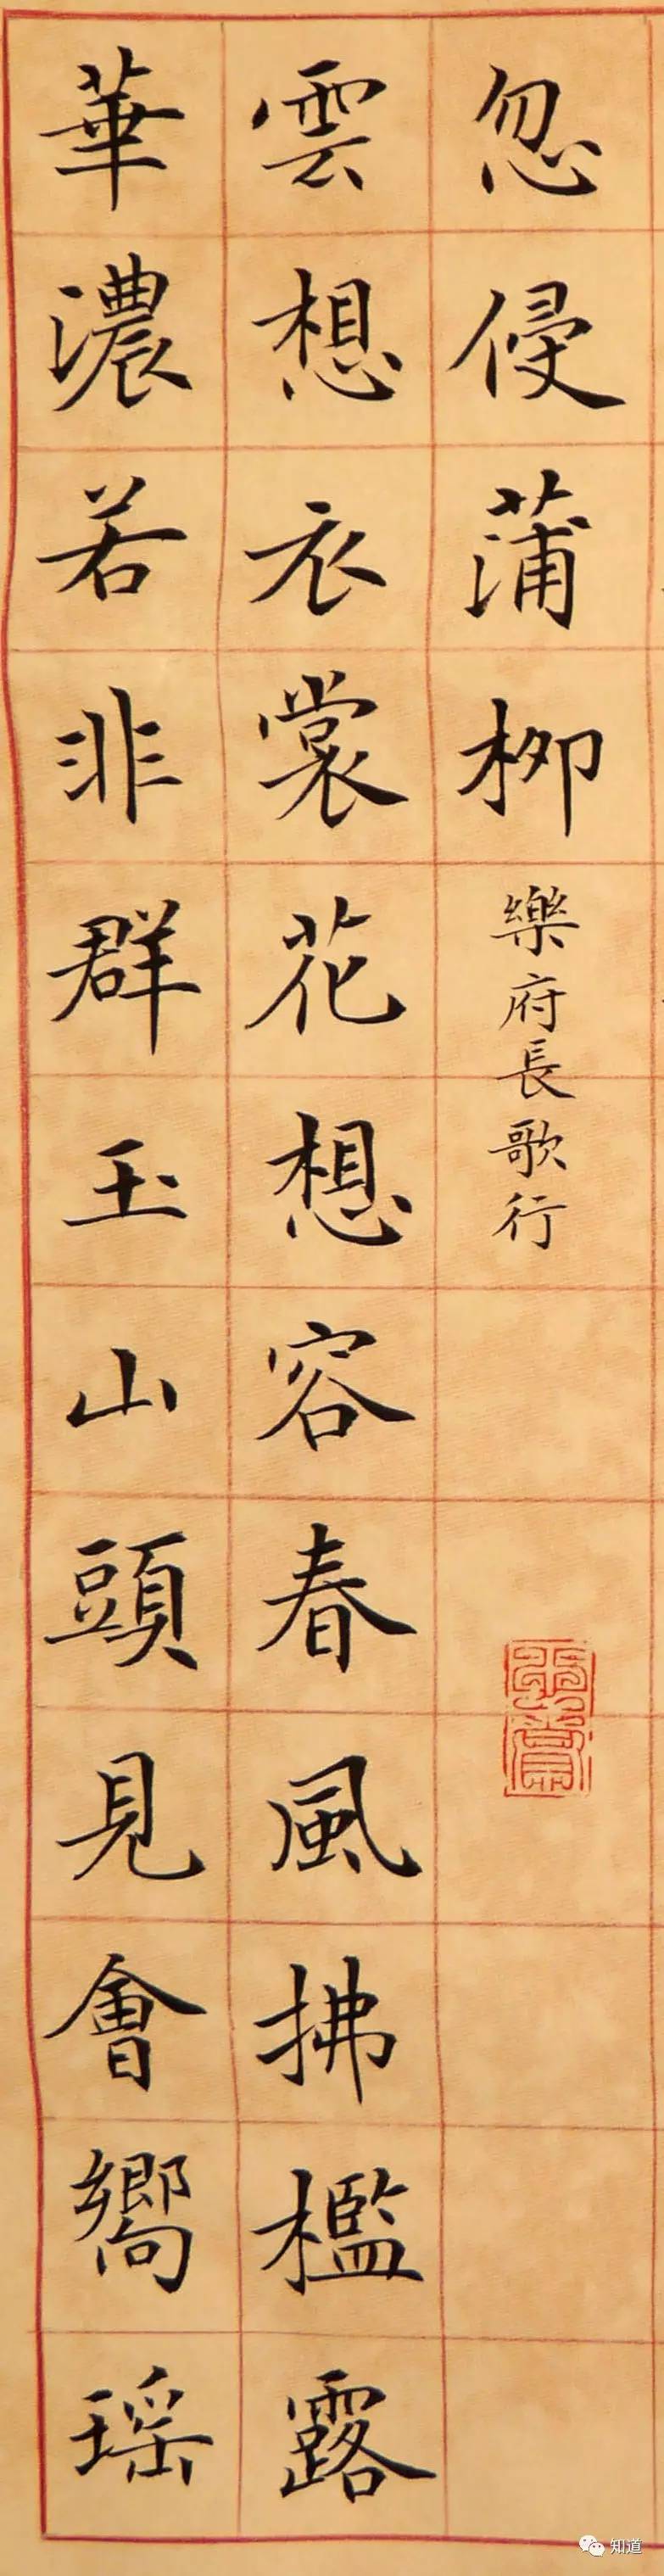 忽侵蒲柳
樂府長歌行
雲想衣裳花想容春風拂檻露
華濃若非群玉山頭見會嚮瑤
知道